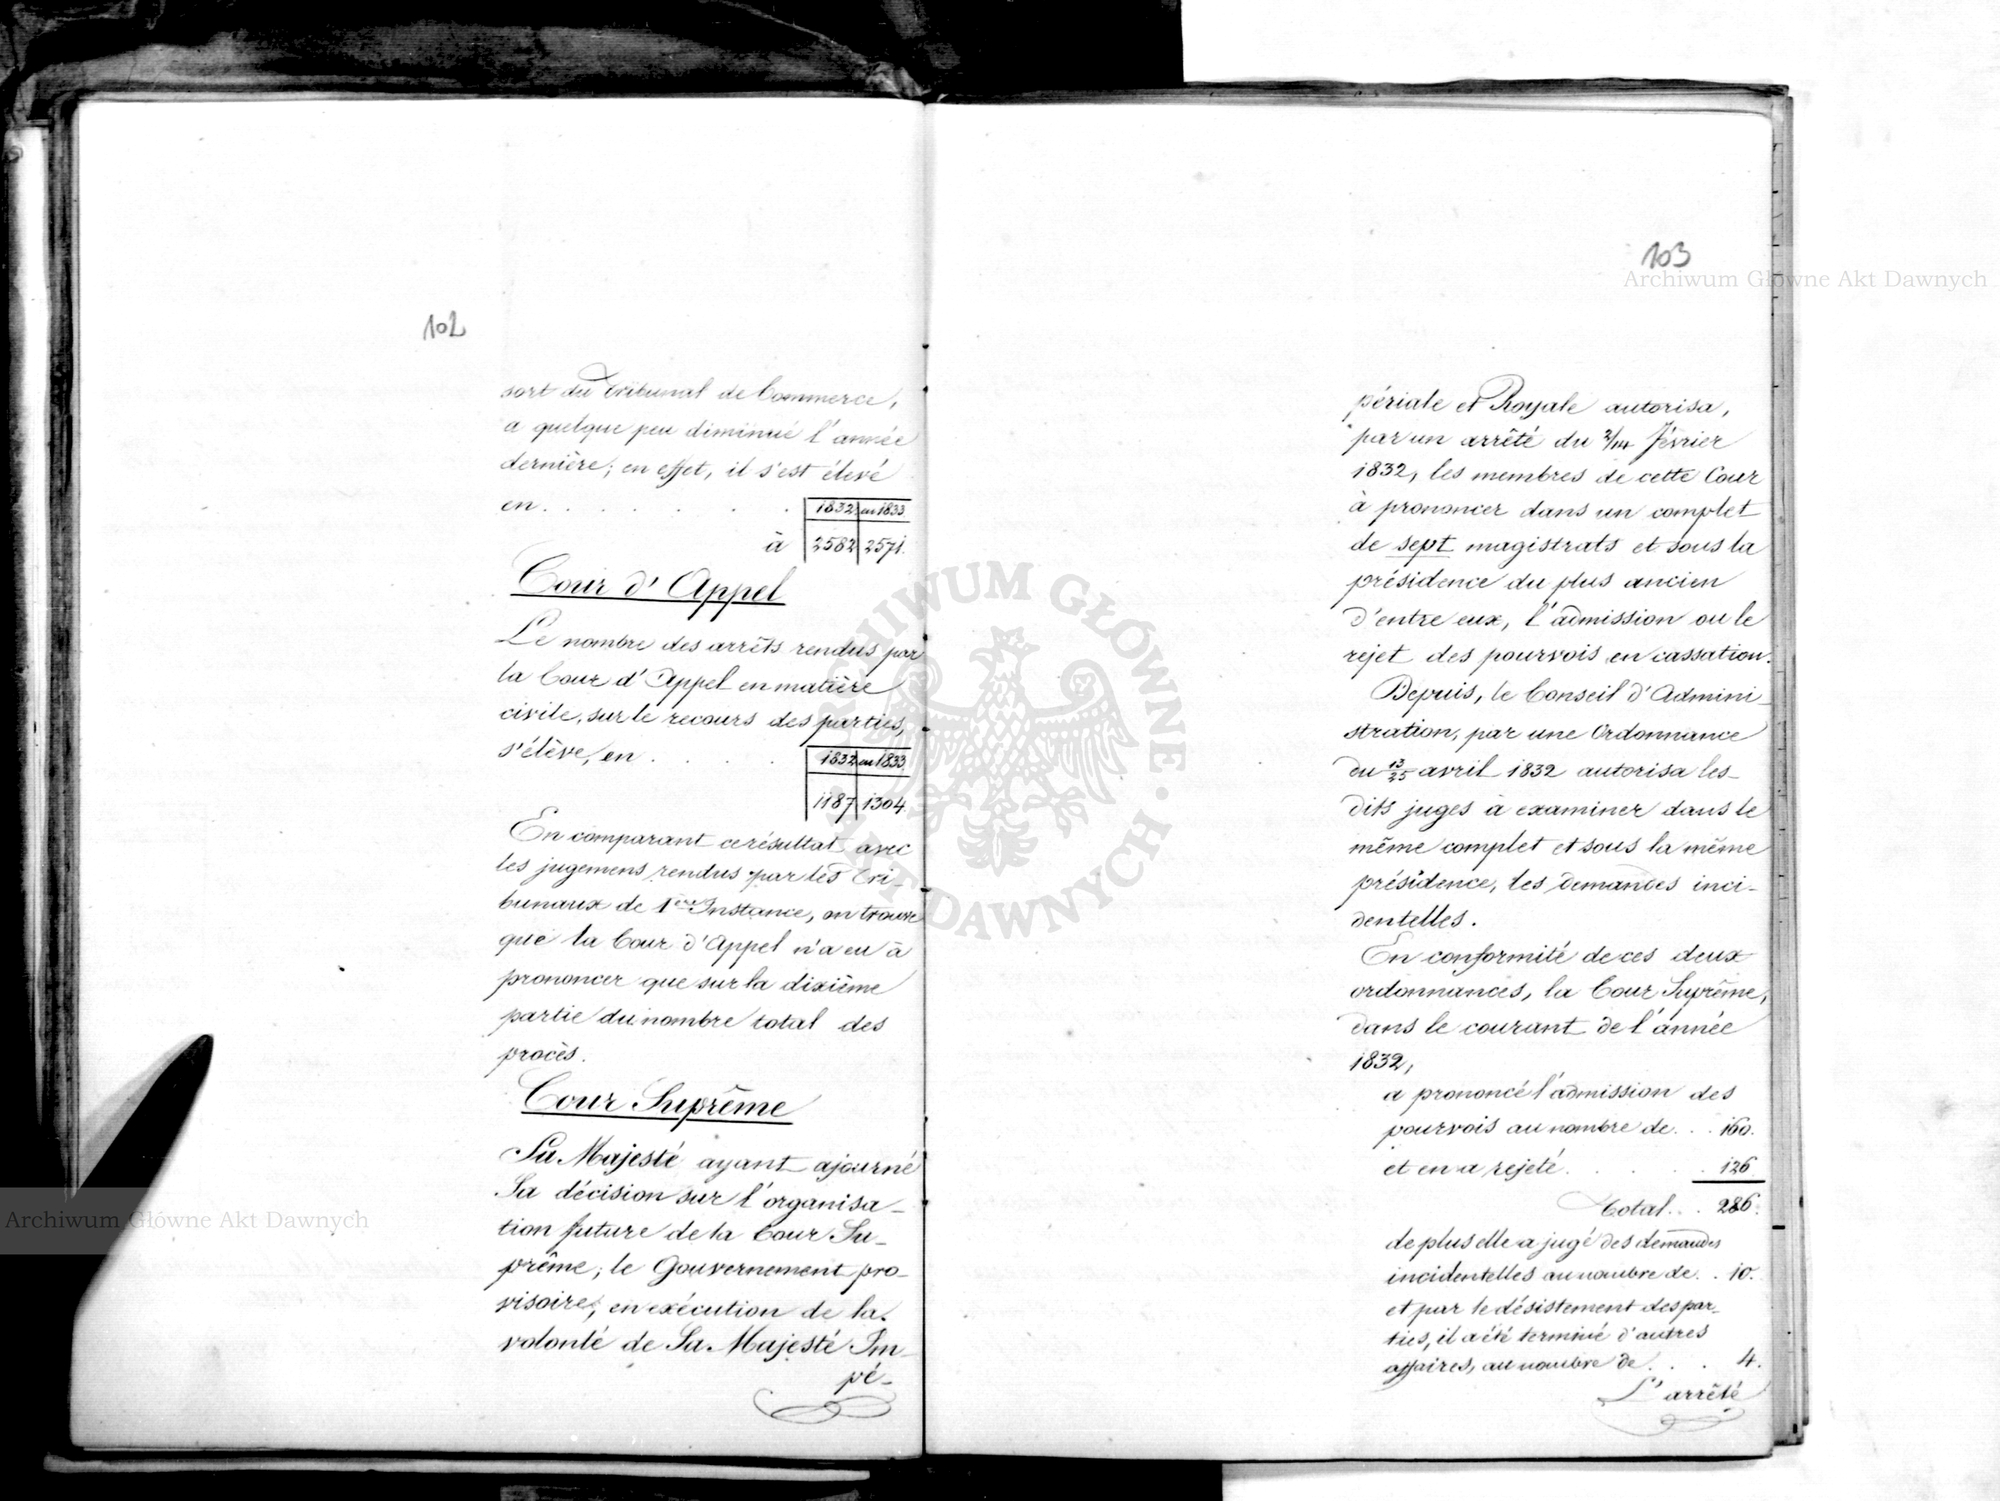 102
sort du Tribunal de Commerce,
a quelque peu diminué l'année
dernière; en effet, il s'est élevé
en . . . . . . . 1832 en 1833
à 2582 2571.
Cour d'Appel
Le nombre des arrêts rendus par
la Cour d'Appel en matière
civile, sur le recours des parties,
s'élève, en . . . . 1832 en 1833
1187 1304
En comparant ce résultat avec
les jugemens rendus par les Tri-
bunaux de 1ère Instance, on trouve
que la Cour d'Appel n'a eu à
prononcer que sur la dixième
partie du nombre total des
procès.
Cour Suprême
Sa Majesté ayant ajourné
Sa décision sur l'organisa-
tion future de la Cour Su-
prême; le Gouvernement pro-
visoire, en exécution de la
volonté de Sa Majesté Im-
pé-
103
périale et Royale autorisa,
par un arrêté du 2/14 Février
1832, les membres de cette Cour
à prononcer dans un complet
de sept magistrats et sous la
présidence du plus ancien
d'entre eux, l'admission ou le
rejet des pourvois en cassation.
Depuis, le Conseil d'Admini-
stration, par une Ordonnance
du 13/25 avril 1832 autorisa les-
dits juges à examiner dans le
même complet et sous la même
présidence, les demandes inci-
dentelles.
En conformité de ces deux
ordonnances, la Cour Suprême,
dans le courant de l'année
1832,
a prononcé l'admission des
pourvois au nombre de . . 160.
et en a rejeté . . . . . 126
Total . . 286.
de plus elle a jugé des demandes
incidentelles au nombre de . . 10.
et par le désistement des par-
ties, il a été terminé d'autres
affaires, au nombre de . . . 4.
L'arrêté
Archiwum Główne Akt Dawnych
Archiwum Główne Akt Dawnych
ARCHIWUM GŁÓWNE AKT DAWNYCH